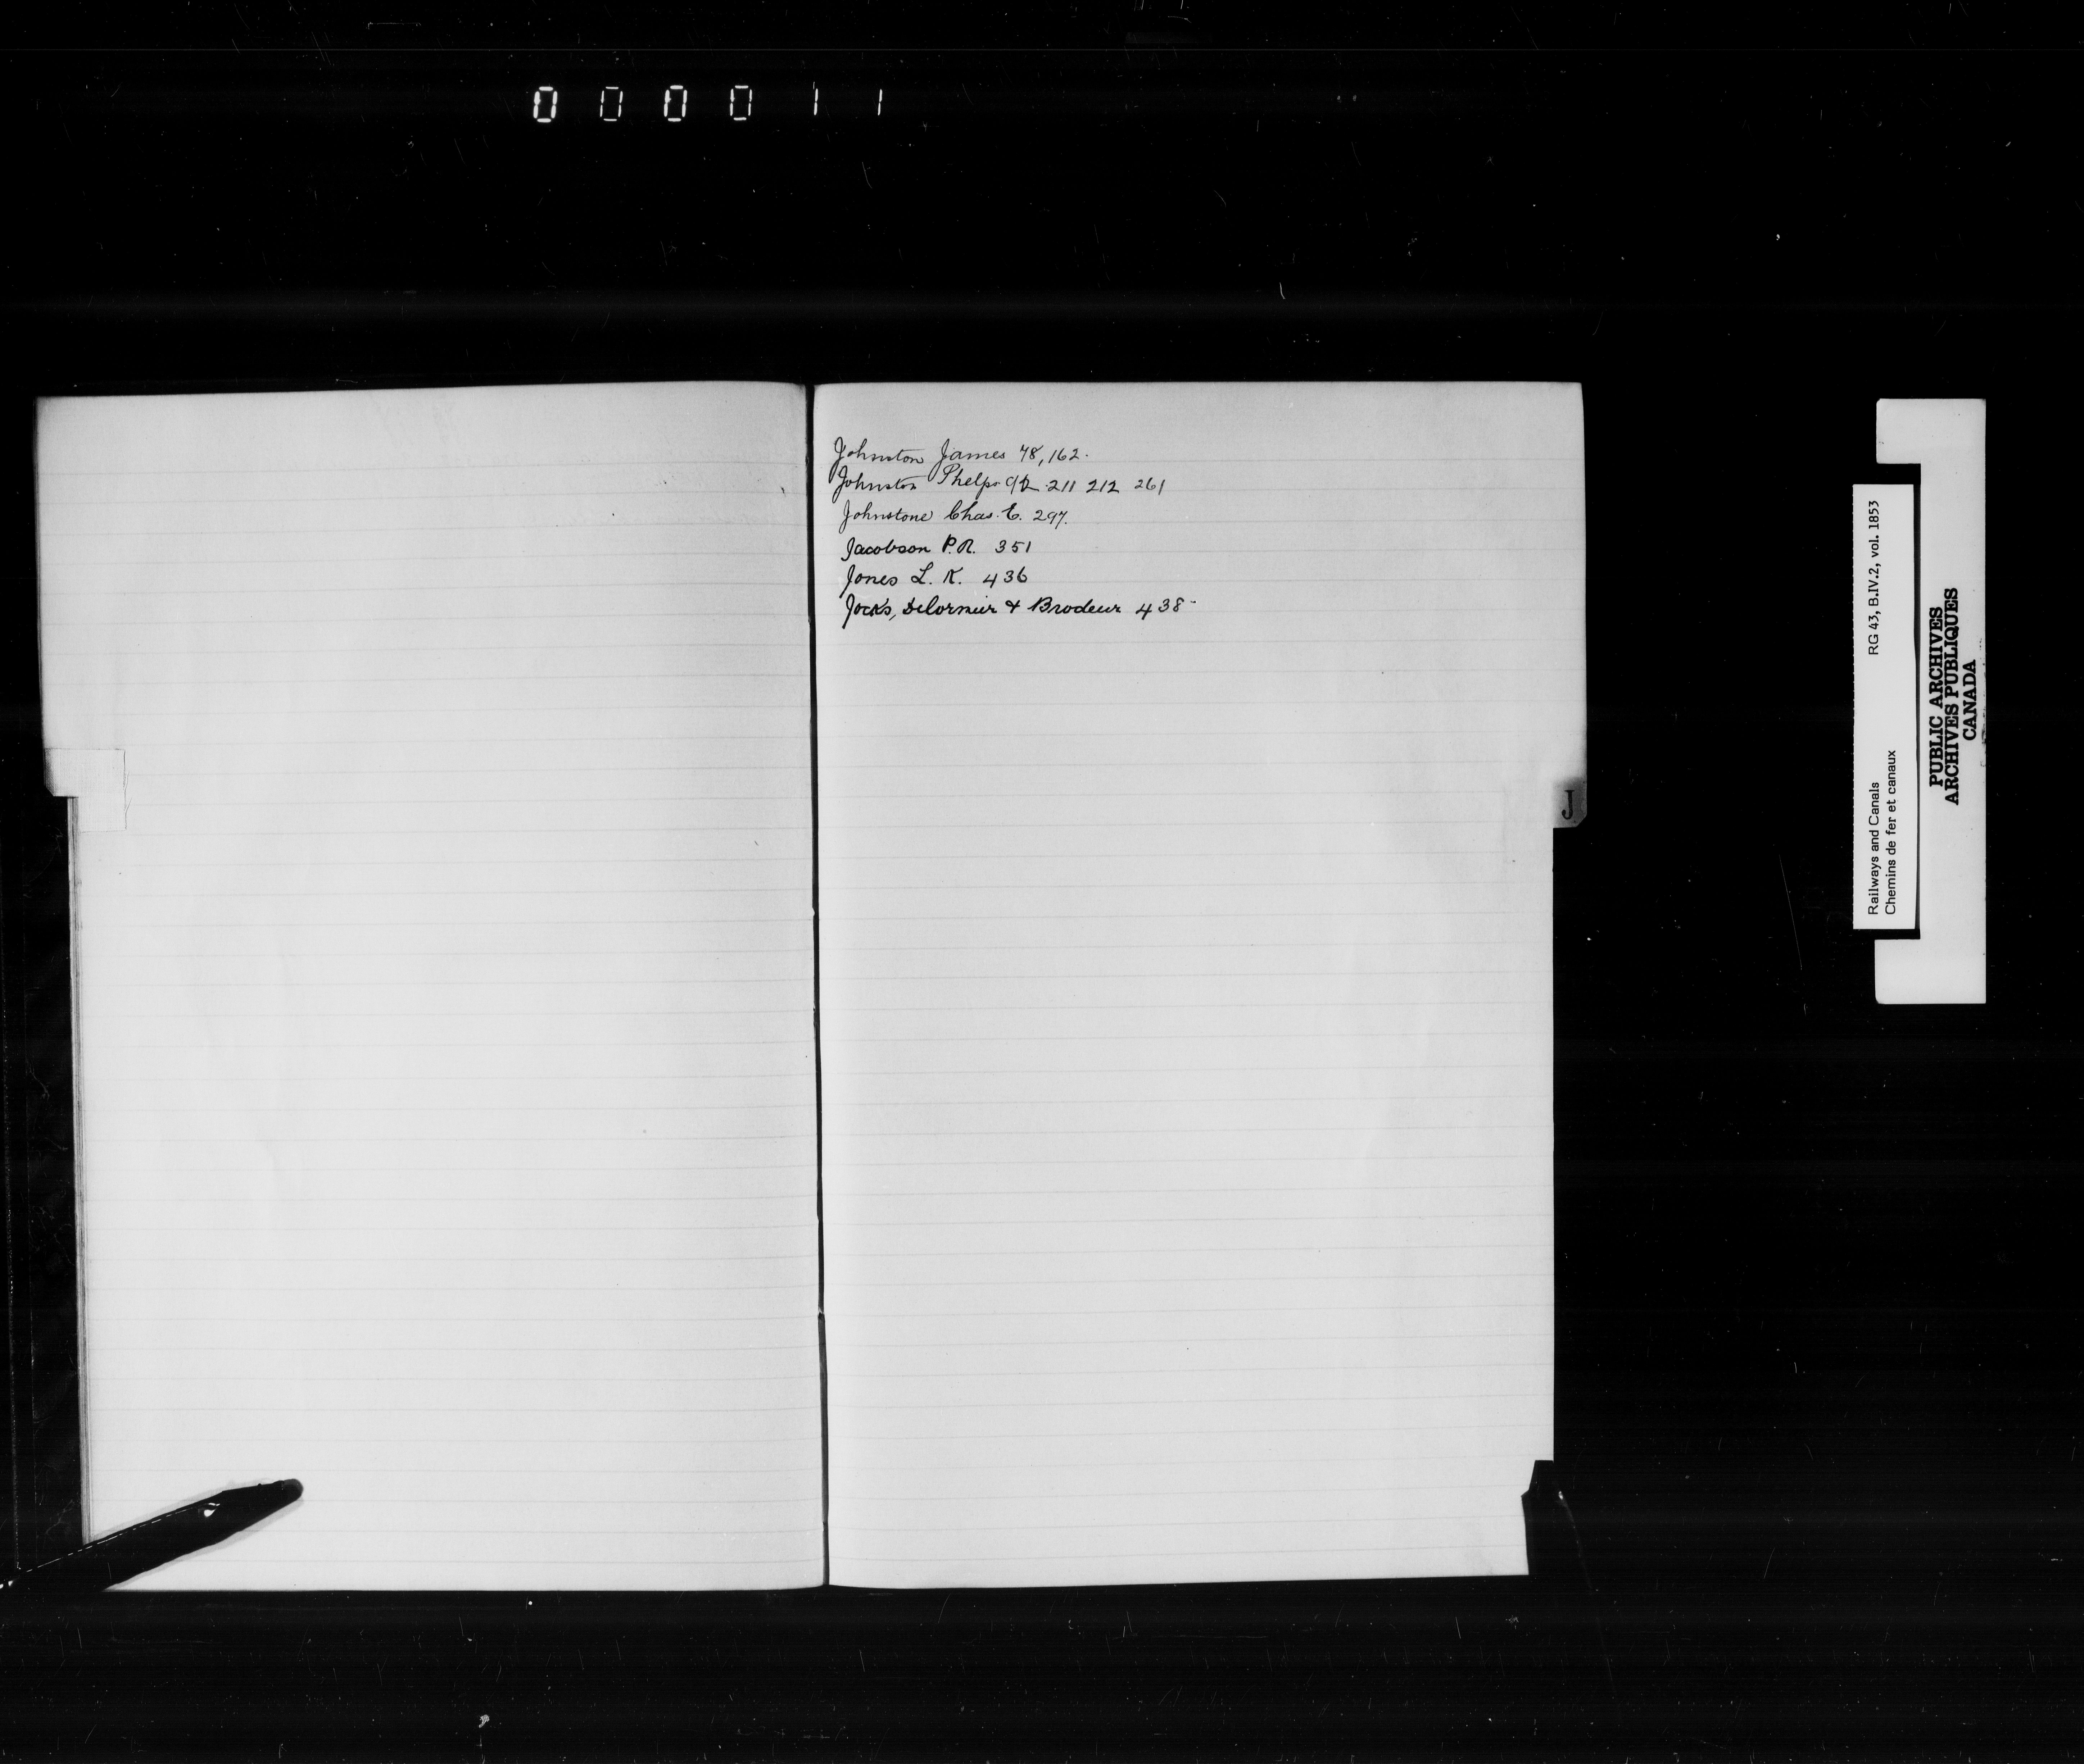 000011
Johnston James 78, 162.
Johnston Phelps 92 211 212 261
Johnstone Chas. E. 297.
Jacobson P.R. 351
Jones L. K. 436
Jocks, Delormier & Brodeur 438-
J
Railways and Canals RG 43, B.IV.2, vol. 1853
Chemins de fer et canaux
PUBLIC ARCHIVES
ARCHIVES PUBLIQUES
CANADA